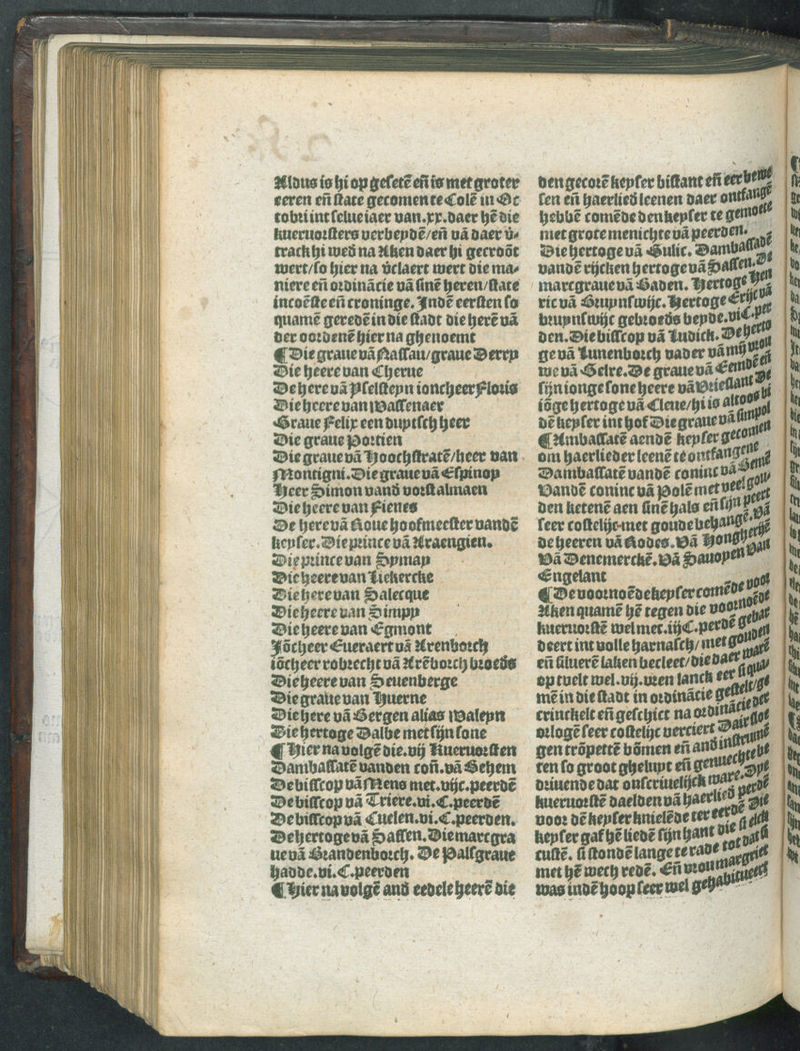 Aldus is hi op geſetē eñ is met groter
eeren eñ ſtate gecomen te Colē in Oc
tobri int ſelue iaer van.xx.daer hē die
kueruorſters verbeydē/eñ vā daer v̄-
track hi wed̄ na Aken daer hi gecroōt
wert/ſo hier na v̄claert wert die ma-
niere eñ ordināciè vā ſinē heren/ſtate
incōeſte eñ croninge. Indē eerſten ſo
quamē geredē in die ſtadt die herē vā
der oordenē hier na ghenoemt
¶ Die graue vā Naſſau/graue Derry
Die heere van Cherue
De here vā Yſelſteyn ioncheer Floris
Die heere van Waſſenaer
Graue Felix een duytſch heer
Die graue Portien
Die graue vā Hoochſtratē/heer van
Montigni.Die graue vā Eſpinoy
Heer Simon vand̄ vorſt almaen
Die heere van Fienes
De here vā Roue hoofmeeſter vandē
keyſer.Die prince vā Araengien.
Die prince van Symay
Die heere van Liekercke
Die here van Salecque
Die heere van Simpy
Die heere van Egmont
Jōcheer Eueraert vā Arenborch
iōcheer robrecht vā Arēborch broed̄s
Die heere van Seuenberge
Die graue van Huerne
Die here vā Bergen alias Waleyn
Die hertoge Dalbe met ſijn ſone
¶ Hier na volgē die.vij Kueruorſten
Dambaſſatē vanden coñ.vā Behem
De biſſcop vā Mens met.vijc.peerdē
De biſſcop vā Triere.vi.C.peerdē
De biſſcop vā Cuelen.vi.C.peerden.
De hertoge vā Saſſen.Die marcgra
ue vā Brandenborch. De Palſgraue
hadde.vi.C.peerden
¶ Hier na volgē and̄ eedele heerē die
den gecorē keyſer biſtant eñ eer bewe
ſen eñ haerlied̄ leenen daer ontfangē
hebbē comēde den keyſer te gemoete
met grote menichte vā peerden.
Die hertoge vā Gulic. Dambaſſadē
vandē rijcken hertoge vā Saſſen. De
marcgraue vā Baden. Hertoge Hen
ric vā Bruynſwijc. Hertoge Erijc vā
bruynſwijc gebroed̄s beyde.vi C.per
den.Die biſſcop vā Ludick. De herto
ge vā Lunenborch vader vā mijn vrou
we vā Gelre.De graue vā Eemdē eñ
ſijn ionge ſone heere vā Vrieſlant De
iōge hertoge vā Cleue/hi is altoos bi
dē keyſer int hof Die graue vā ſimpol
¶ Ambaſſatē aendē keyſer gecomen
om haerlieder leenē te ontfangene
Dambaſſatē vandē coninc vā Bemē
Vandē coninc vā Polē met veel gou-
den ketenē aen ſinē hals eñ ſijn peert
ſeer coſtelijc met goude behangē. Vā
de heeren vā Rodes. Vā Hongherijē
Vā Denemerckē. Vā Sauoyen Van
Engelant
¶ De voornoēde keyſer comēde voor
Aken quamē hē tegen die voornoēde
kueruorſtē wel met.iijC.perdē gebar
deert int volle harnaſch/met gouden
eñ ſiluerē laken becleet/die daer warē
op tuelt wel.vij.vren lanck eer ſi qua-
mē in die ſtadt in ordināciè geſtelt/ge
crinckelt eñ geſchict na ordināciè der
orlogē ſeer coſtelijc verciert Dair ſloe
gen trōpettē bōmen eñ and̄ inſtrumē
ten ſo groot gheluyt eñ genuechte be
driuende dat onſcriuelijck ware. Dye
kueruorſtē daelden vā haerlied̄ perdē
voor dē keyſer knielēde ter eerdē Die
keyſer gaf hē liedē ſijn hant die ſi elck
cuſtē. ſi ſtondē lange te rade tot dat ſi
met hē wech redē. Eñ vrou margriet
was indē hoop ſeer wel gehabitueert